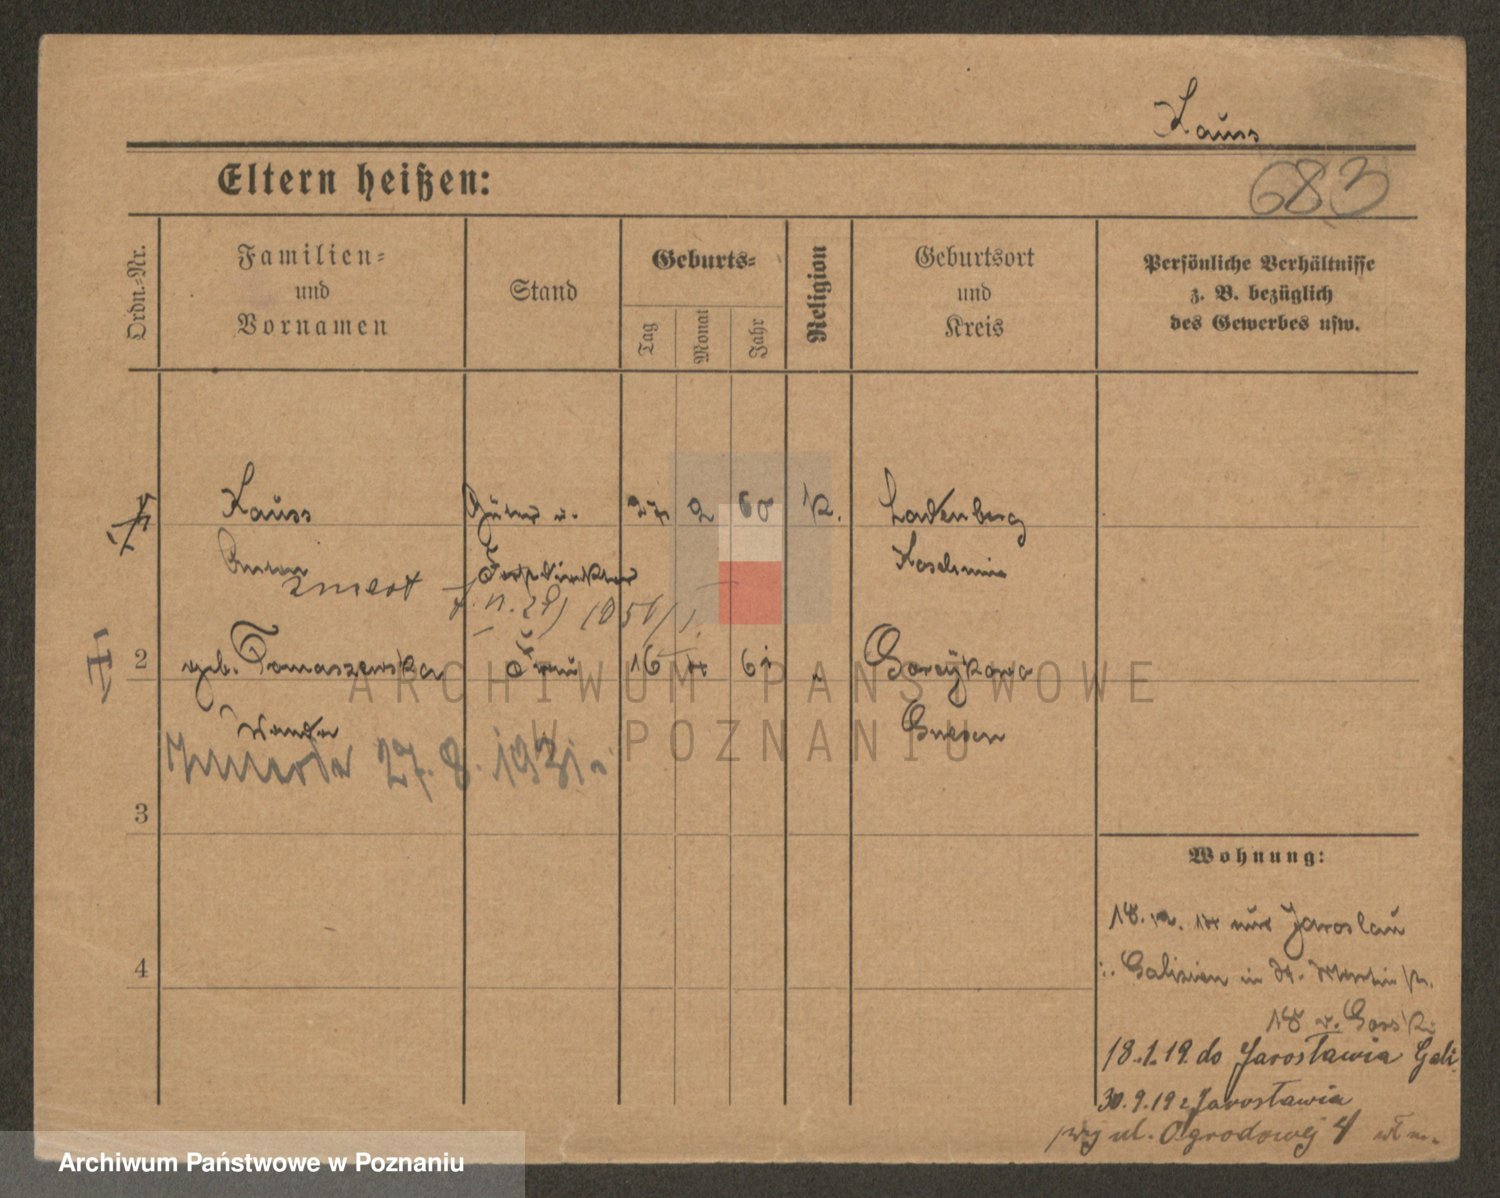 Kauss
683
Eltern heißen:
Ordn.-Nr.
Familien-
und
Vornamen
Stand
Geburts-
Tag
Monat
Jahr
Religion
Geburtsort
und
Kreis
Persönliche Verhältnisse
z. B. bezüglich
des Gewerbes usw.
Kauss 27 2 60 k. Ladenberg
Koschmin
zmarł
2 geb. Tomaszewska Frau 16 61 "
Wanda Gnesen
Zmarła 27.8.1931.
3
4
Wohnung:
18. aus Jaroslau
Galizien in St. Martinstr.
18 v. Gorski
18.1.19 do Jarosławia Gali
30.9.19 z Jarosławia
przy ul. Ogrodowej 4
ARCHIWUM PAŃSTWOWE
W POZNANIU
Archiwum Państwowe w Poznaniu